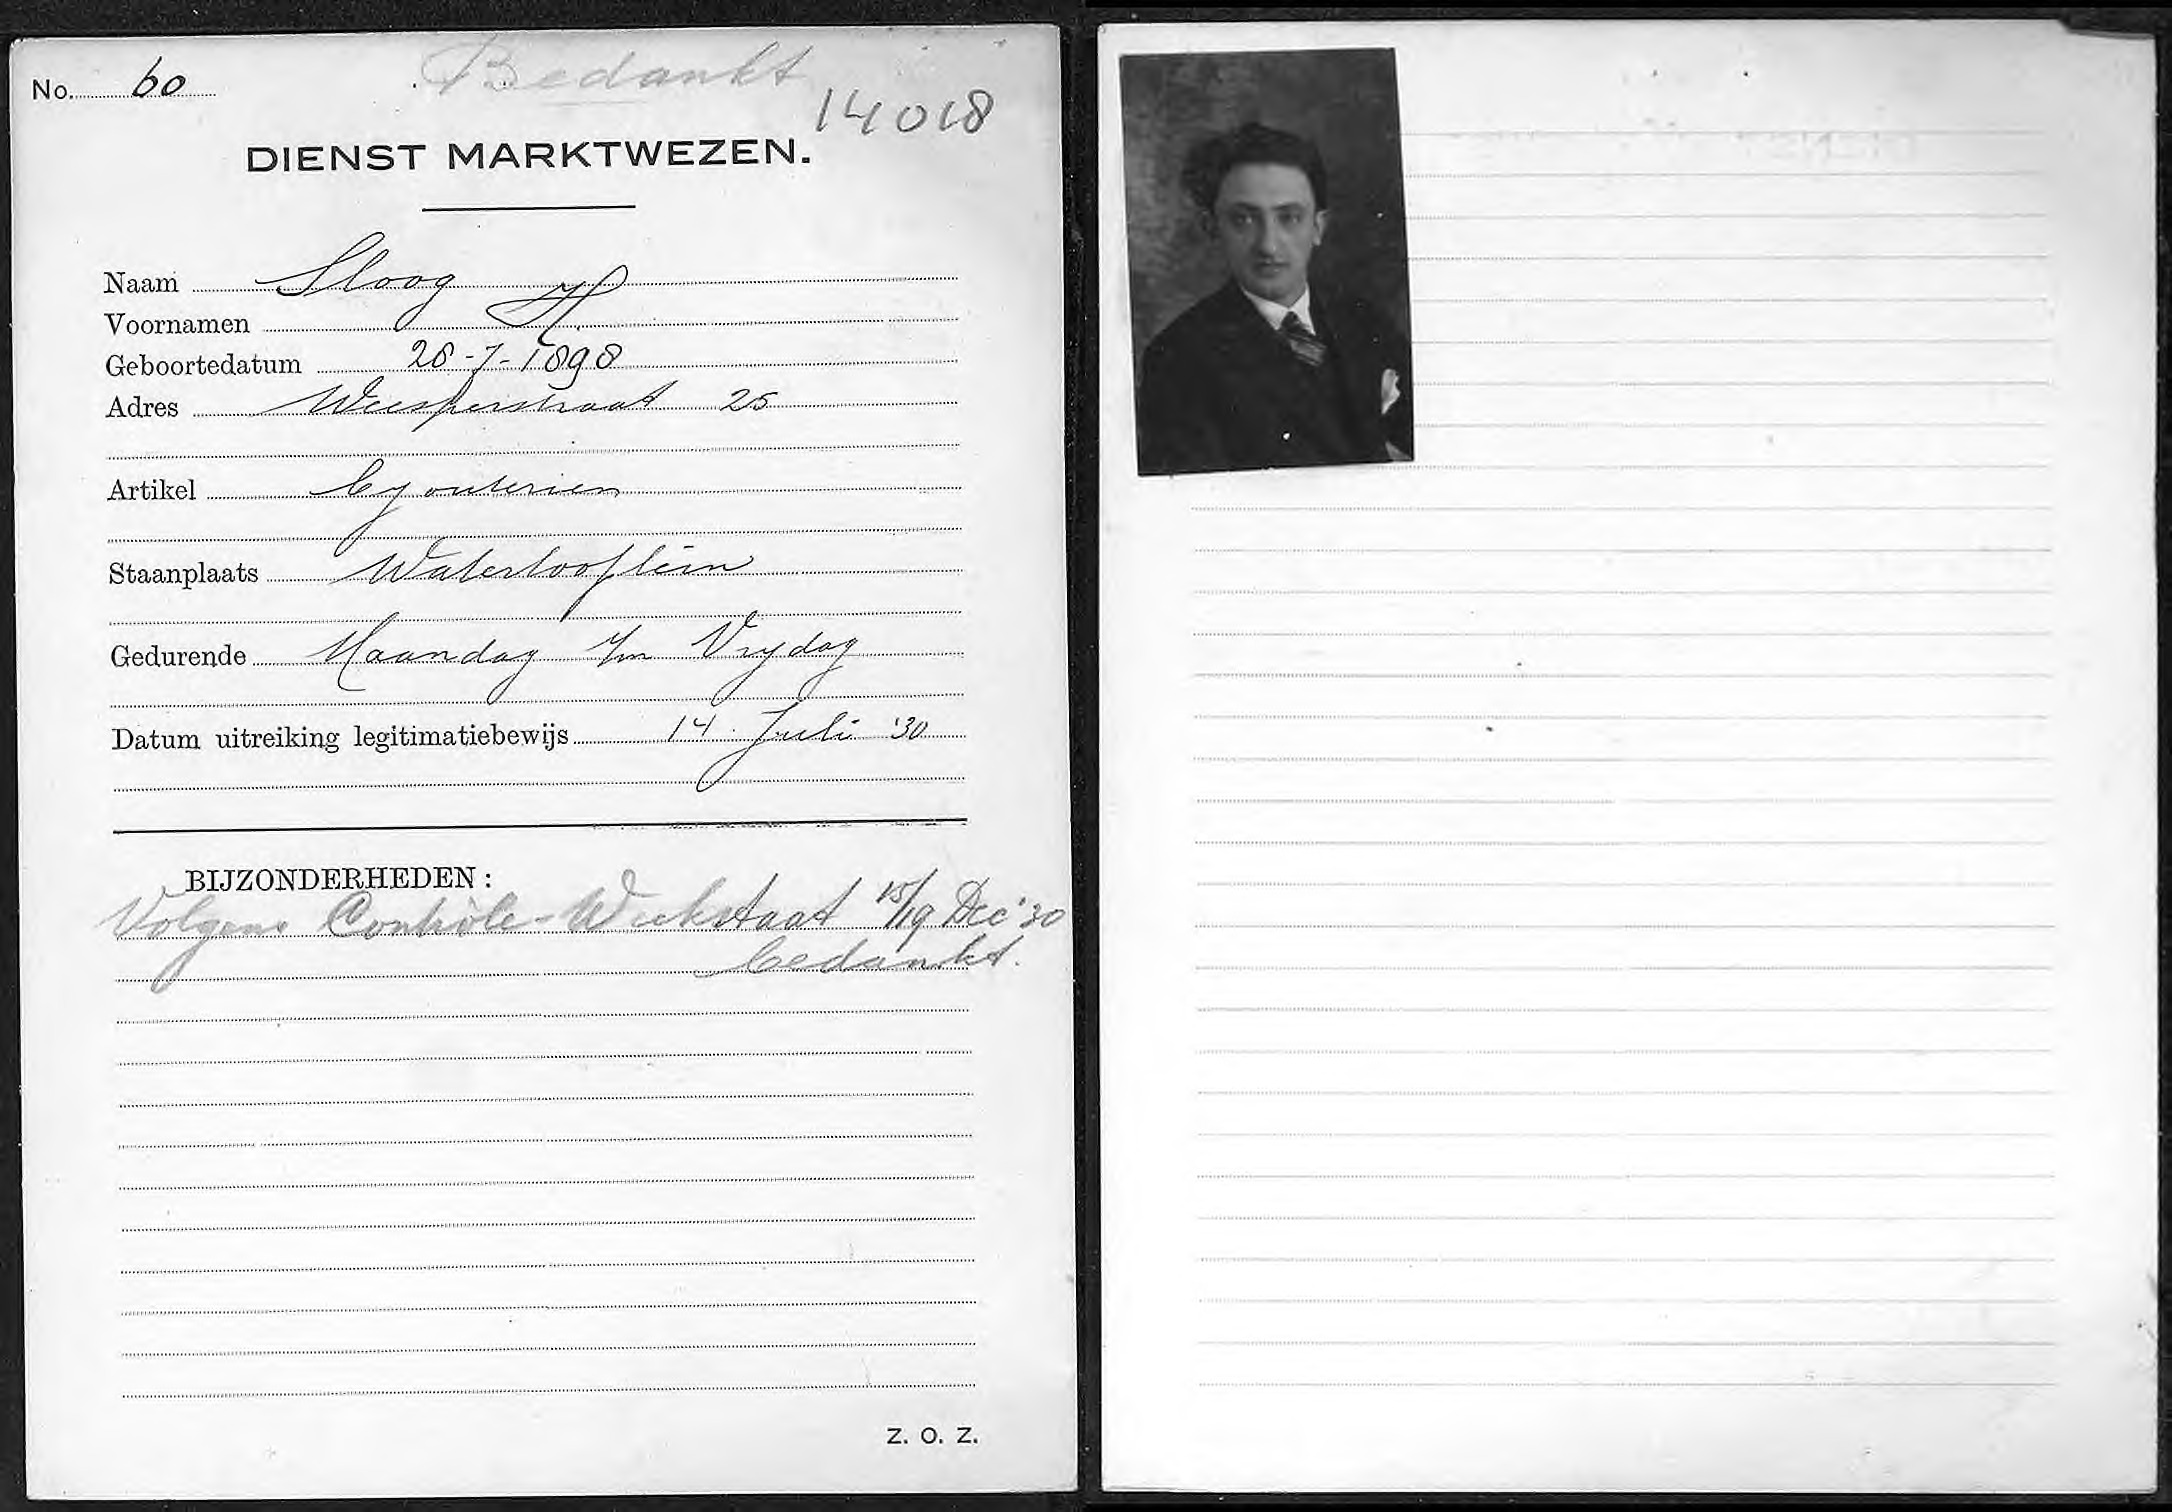 No. 60
Bedankt
14018
DIENST MARKTWEZEN.
Naam Sloog
Voornamen H.
Geboortedatum 28-7-1898
Adres Weesperstraat 25
Artikel byouterien
Staanplaats Waterlooplein
Gedurende Maandag t/m Vrijdag
Datum uitreiking legitimatiebewijs 14 Juli '30
BIJZONDERHEDEN:
Volgens Contrôle-Weekstaat 15/19 Dec '30
bedankt.
Z. O. Z.